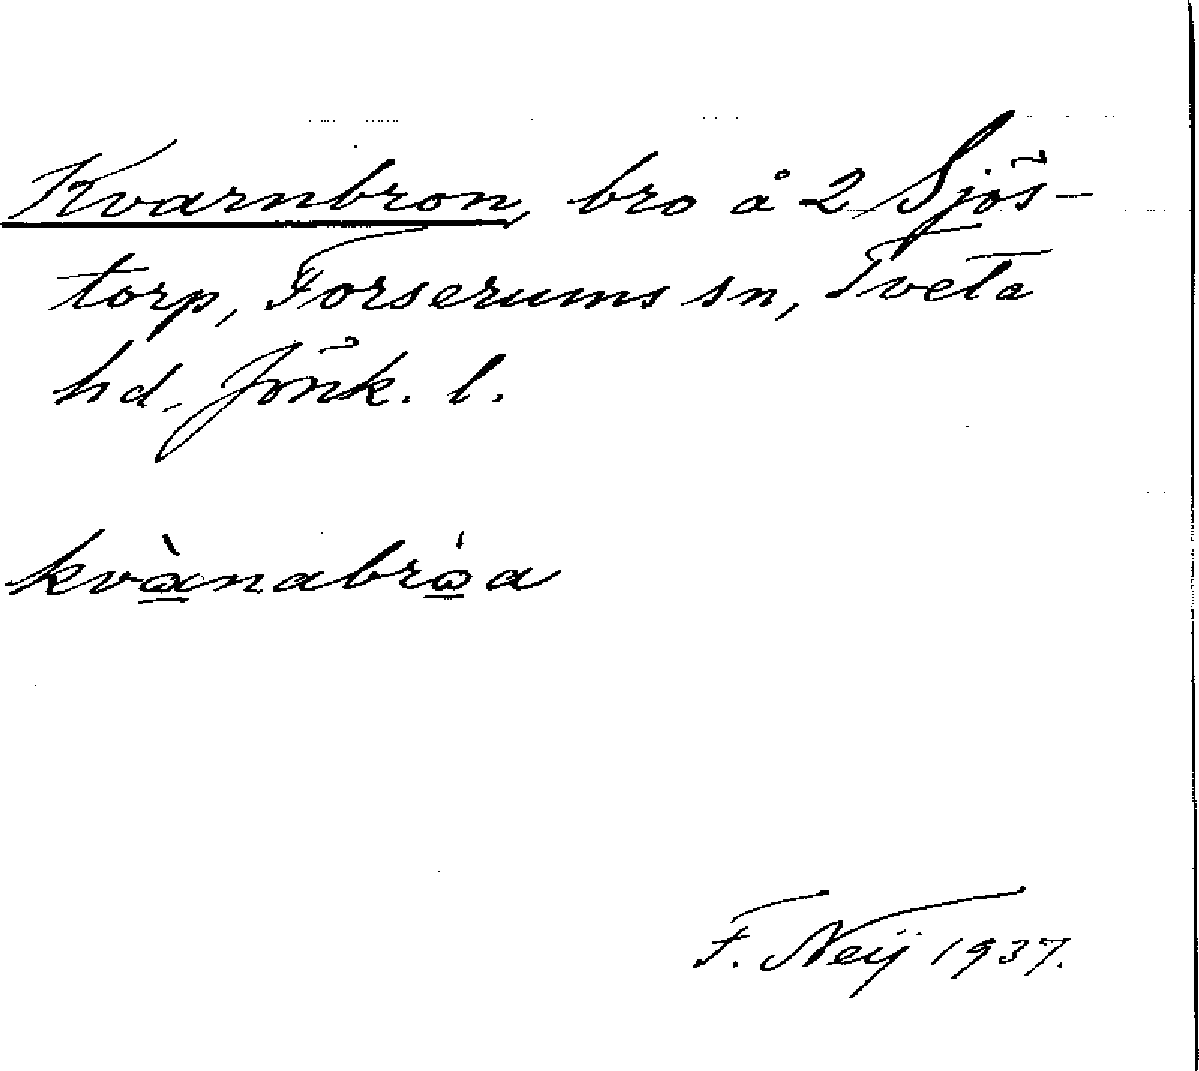 Kvarnbron, bro å 2 Sjös-
torp, Forserums sn, Tveta
hd, Jönk. l.
kvànabróa
F. Neij 1937.